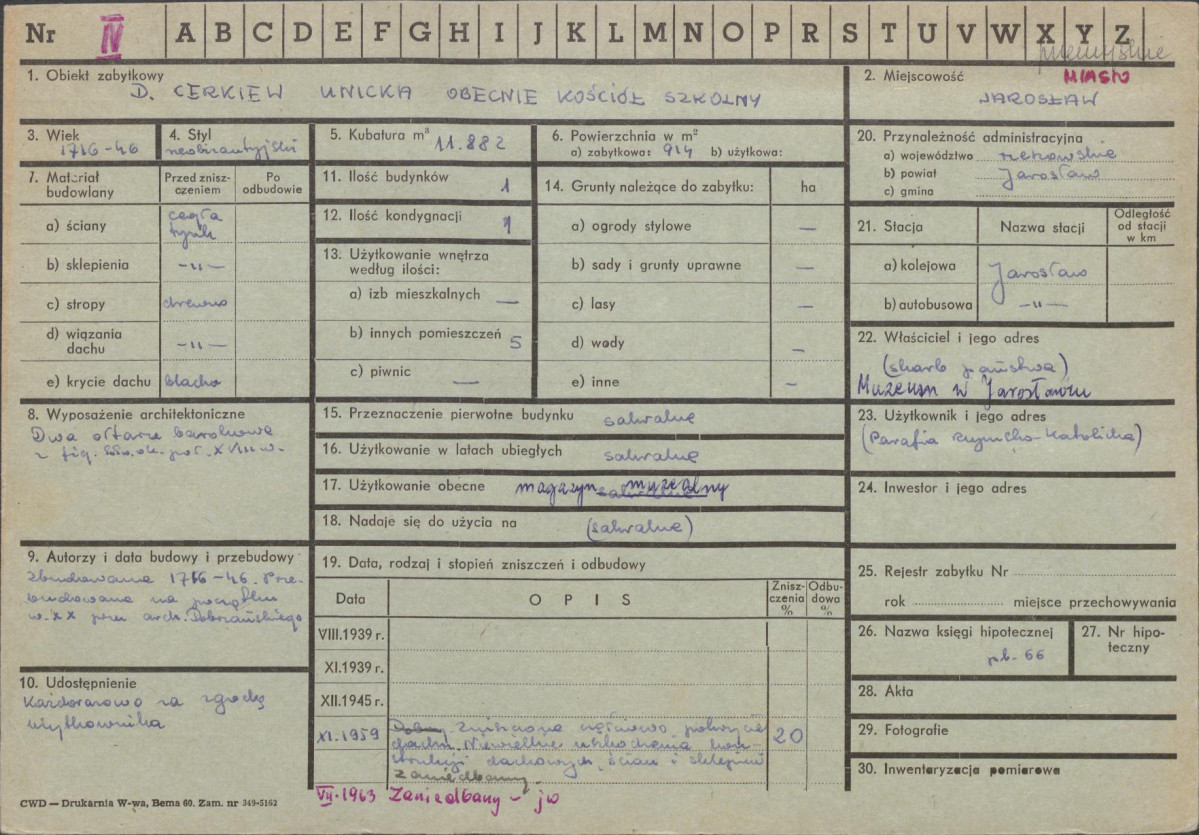 Nr IV A B C D E F G H I J K L M N O P R S T U V W X Y Z
przemyskie
1. Obiekt zabytkowy
D. CERKIEW UNICKA OBECNIE KOŚCIÓŁ SZKOLNY
2. Miejscowość MIASTO
JAROSŁAW
3. Wiek
1716-46
4. Styl
neobizantyjski
5. Kubatura m³ 11.882
6. Powierzchnia w m²
a) zabytkowa: 914 b) użytkowa:
20. Przynależność administracyjna
a) województwo rzeszowskie
b) powiat Jarosław
c) gmina
7. Materiał budowlany
Przed zniszczeniem
Po odbudowie
a) ściany cegła tynk
b) sklepienia -„-
c) stropy drewno
d) wiązania dachu -„-
e) krycie dachu blacha
11. Ilość budynków 1
12. Ilość kondygnacji 1
13. Użytkowanie wnętrza
według ilości:
a) izb mieszkalnych —
b) innych pomieszczeń 5
c) piwnic —
14. Grunty należące do zabytku: ha
a) ogrody stylowe —
b) sady i grunty uprawne —
c) lasy —
d) wody —
e) inne —
21. Stacja
Nazwa stacji
Odległość od stacji w km
a) kolejowa Jarosław
b) autobusowa -„-
22. Właściciel i jego adres
(skarb państwa)
Muzeum w Jarosławiu
8. Wyposażenie architektoniczne
Dwa ołtarze barokowe
z fig. św. ok. poł. XVIII w.
15. Przeznaczenie pierwotne budynku sakralne
16. Użytkowanie w latach ubiegłych sakralne
17. Użytkowanie obecne magazyn muzealny
18. Nadaje się do użycia na (sakralne)
23. Użytkownik i jego adres
(Parafia Rzymsko-Katolicka)
24. Inwestor i jego adres
9. Autorzy i data budowy i przebudowy
Zbudowana 1716-46. Prze-
budowana na początku
w. XX przez arch. Dobrzańskiego
10. Udostępnienie
Każdorazowo za zgodą
użytkownika
19. Data, rodzaj i stopień zniszczeń i odbudowy
Data
OPIS
Zniszczenia %
Odbudowa %
VIII.1939 r.
XI.1939 r.
XII.1945 r.
XI.1959 Dobry Zniszczone częściowo pokrycie 20
dachu. Niewielkie uszkodzenia kon-
strukcji dachowych, ścian i sklepień
Zaniedbany.
VII.1963 Zaniedbany - jw
25. Rejestr zabytku Nr
rok miejsce przechowywania
26. Nazwa księgi hipotecznej
pb. 66
27. Nr hipoteczny
28. Akta
29. Fotografie
30. Inwentaryzacja pomiarowa
CWD — Drukarnia W-wa, Bema 60. Zam. nr 349-5162